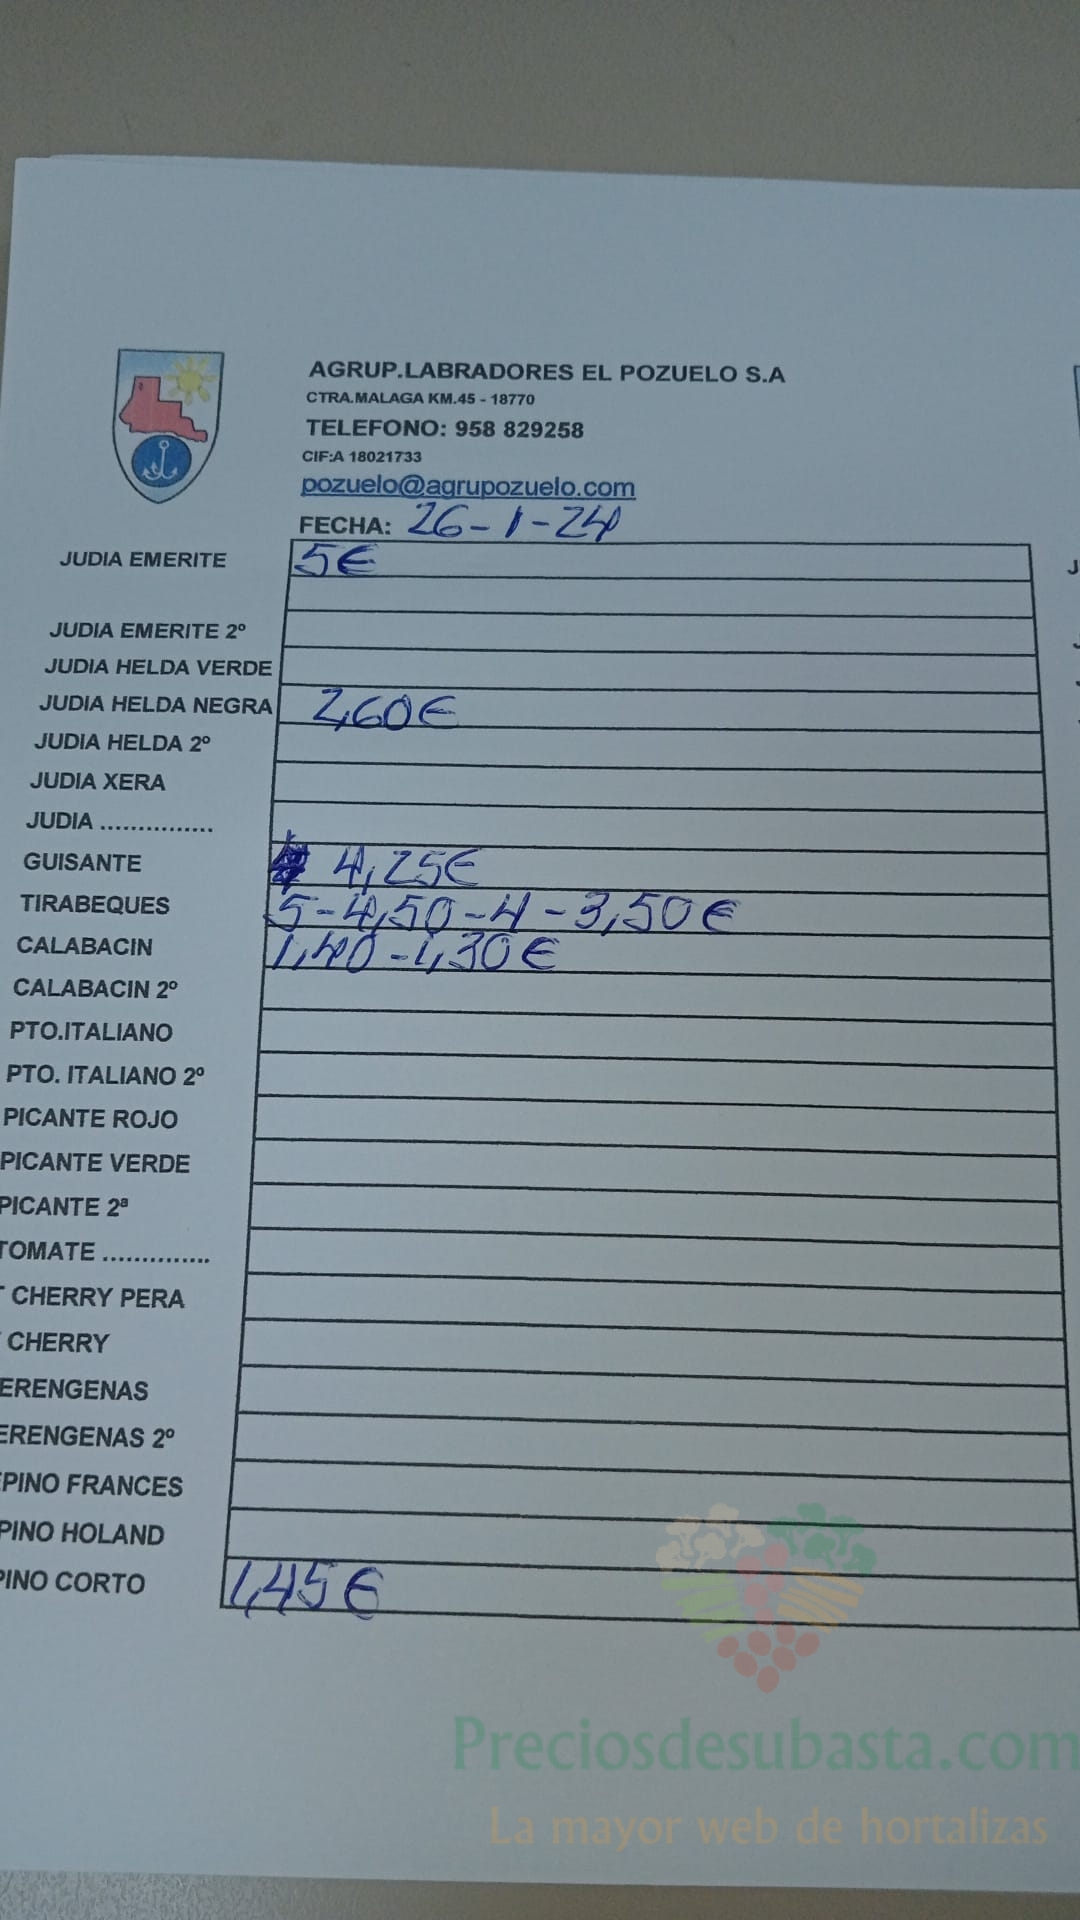 AGRUP.LABRADORES EL POZUELO S.A
CTRA.MALAGA KM.45 - 18770
TELEFONO: 958 829258
CIF:A 18021733
pozuelo@agrupozuelo.com
FECHA: 26-1-24
JUDIA EMERITE 5€
JUDIA EMERITE 2º
JUDIA HELDA VERDE
JUDIA HELDA NEGRA 2,60€
JUDIA HELDA 2º
JUDIA XERA
JUDIA ...............
GUISANTE 4,25€
TIRABEQUES 5-4,50-4-3,50€
CALABACIN 1,40-1,30€
CALABACIN 2º
PTO.ITALIANO
PTO. ITALIANO 2º
PICANTE ROJO
PICANTE VERDE
PICANTE 2ª
TOMATE ..............
CHERRY PERA
CHERRY
ERENGENAS
ERENGENAS 2º
PINO FRANCES
PINO HOLAND
PINO CORTO 1,45€
Preciosdesubasta.com
La mayor web de hortalizas